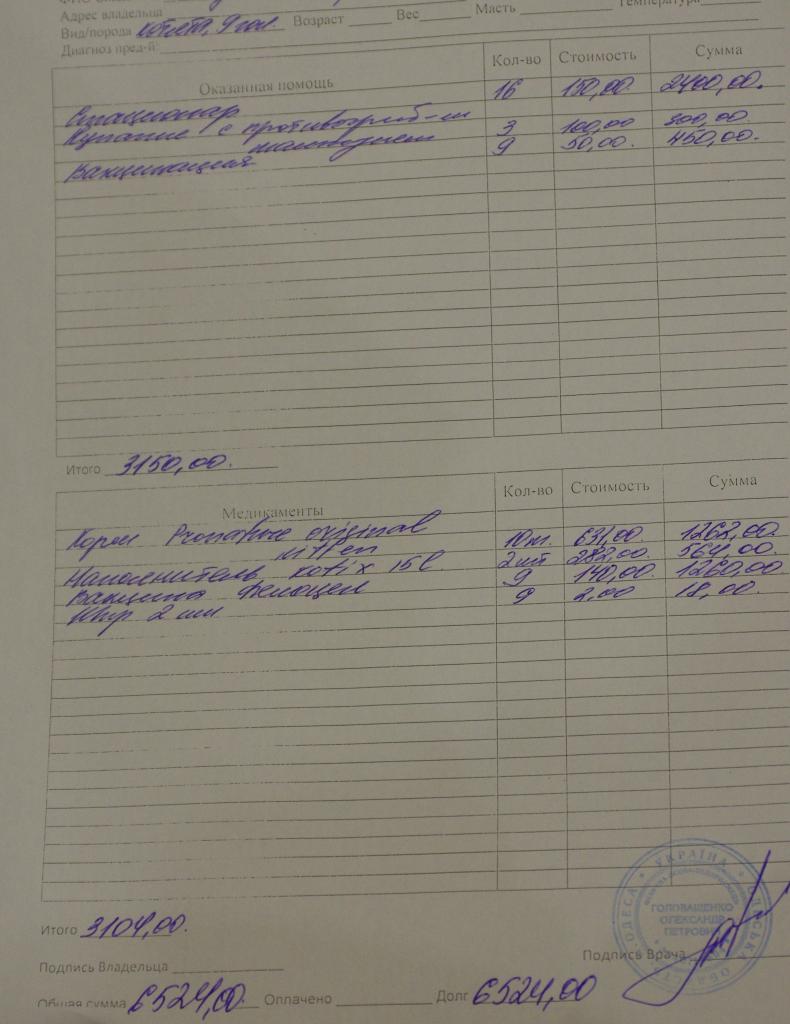 Адрес владельца
Температура
Вид/порода котята, 9 гол. Возраст Вес Масть
Диагноз пред-й:
Оказанная помощь Кол-во Стоимость Сумма
Стационар 16 150,00 2400,00.
Купание с противогриб-м
шампунем 3 100,00 300,00.
Вакцинация 9 50,00. 450,00.
Итого 3150,00.
Медикаменты Кол-во Стоимость Сумма
Корм Pronature original
kitten 631,00. 1262,00.
Наполнитель Kotix 15l 2шт 282,00. 564,00.
Вакцина Фелоцел 9 140,00. 1260,00
Шпр 2 мл 9 2,00 18,00.
Итого 3104,00.
УКРАЇНА
ОДЕСА
ГОЛОВАЩЕНКО
ОЛЕКСАНДР
ПЕТРОВИЧ
Подпись Врача
Подпись Владельца
Общая сумма 6524,00. Оплачено Долг 6524,00